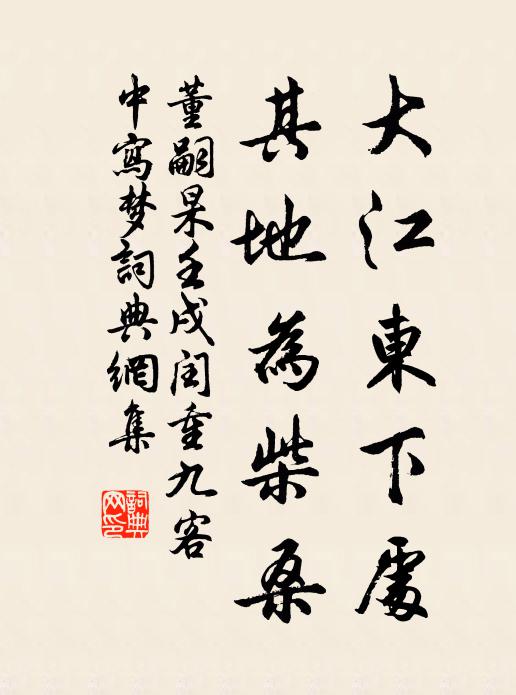 大江東下處
其地為柴桑
董嗣杲壬戌閏重九客
中寫梦詞典網集
詞典
网印